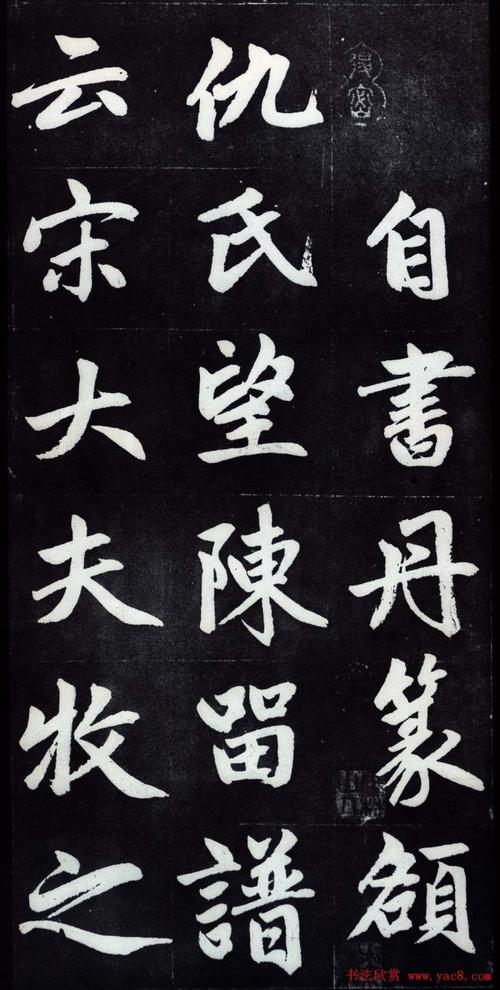 自書丹篆額
仇氏望陳留譜
云宋大夫牧之
书法欣赏 www.yac8.com